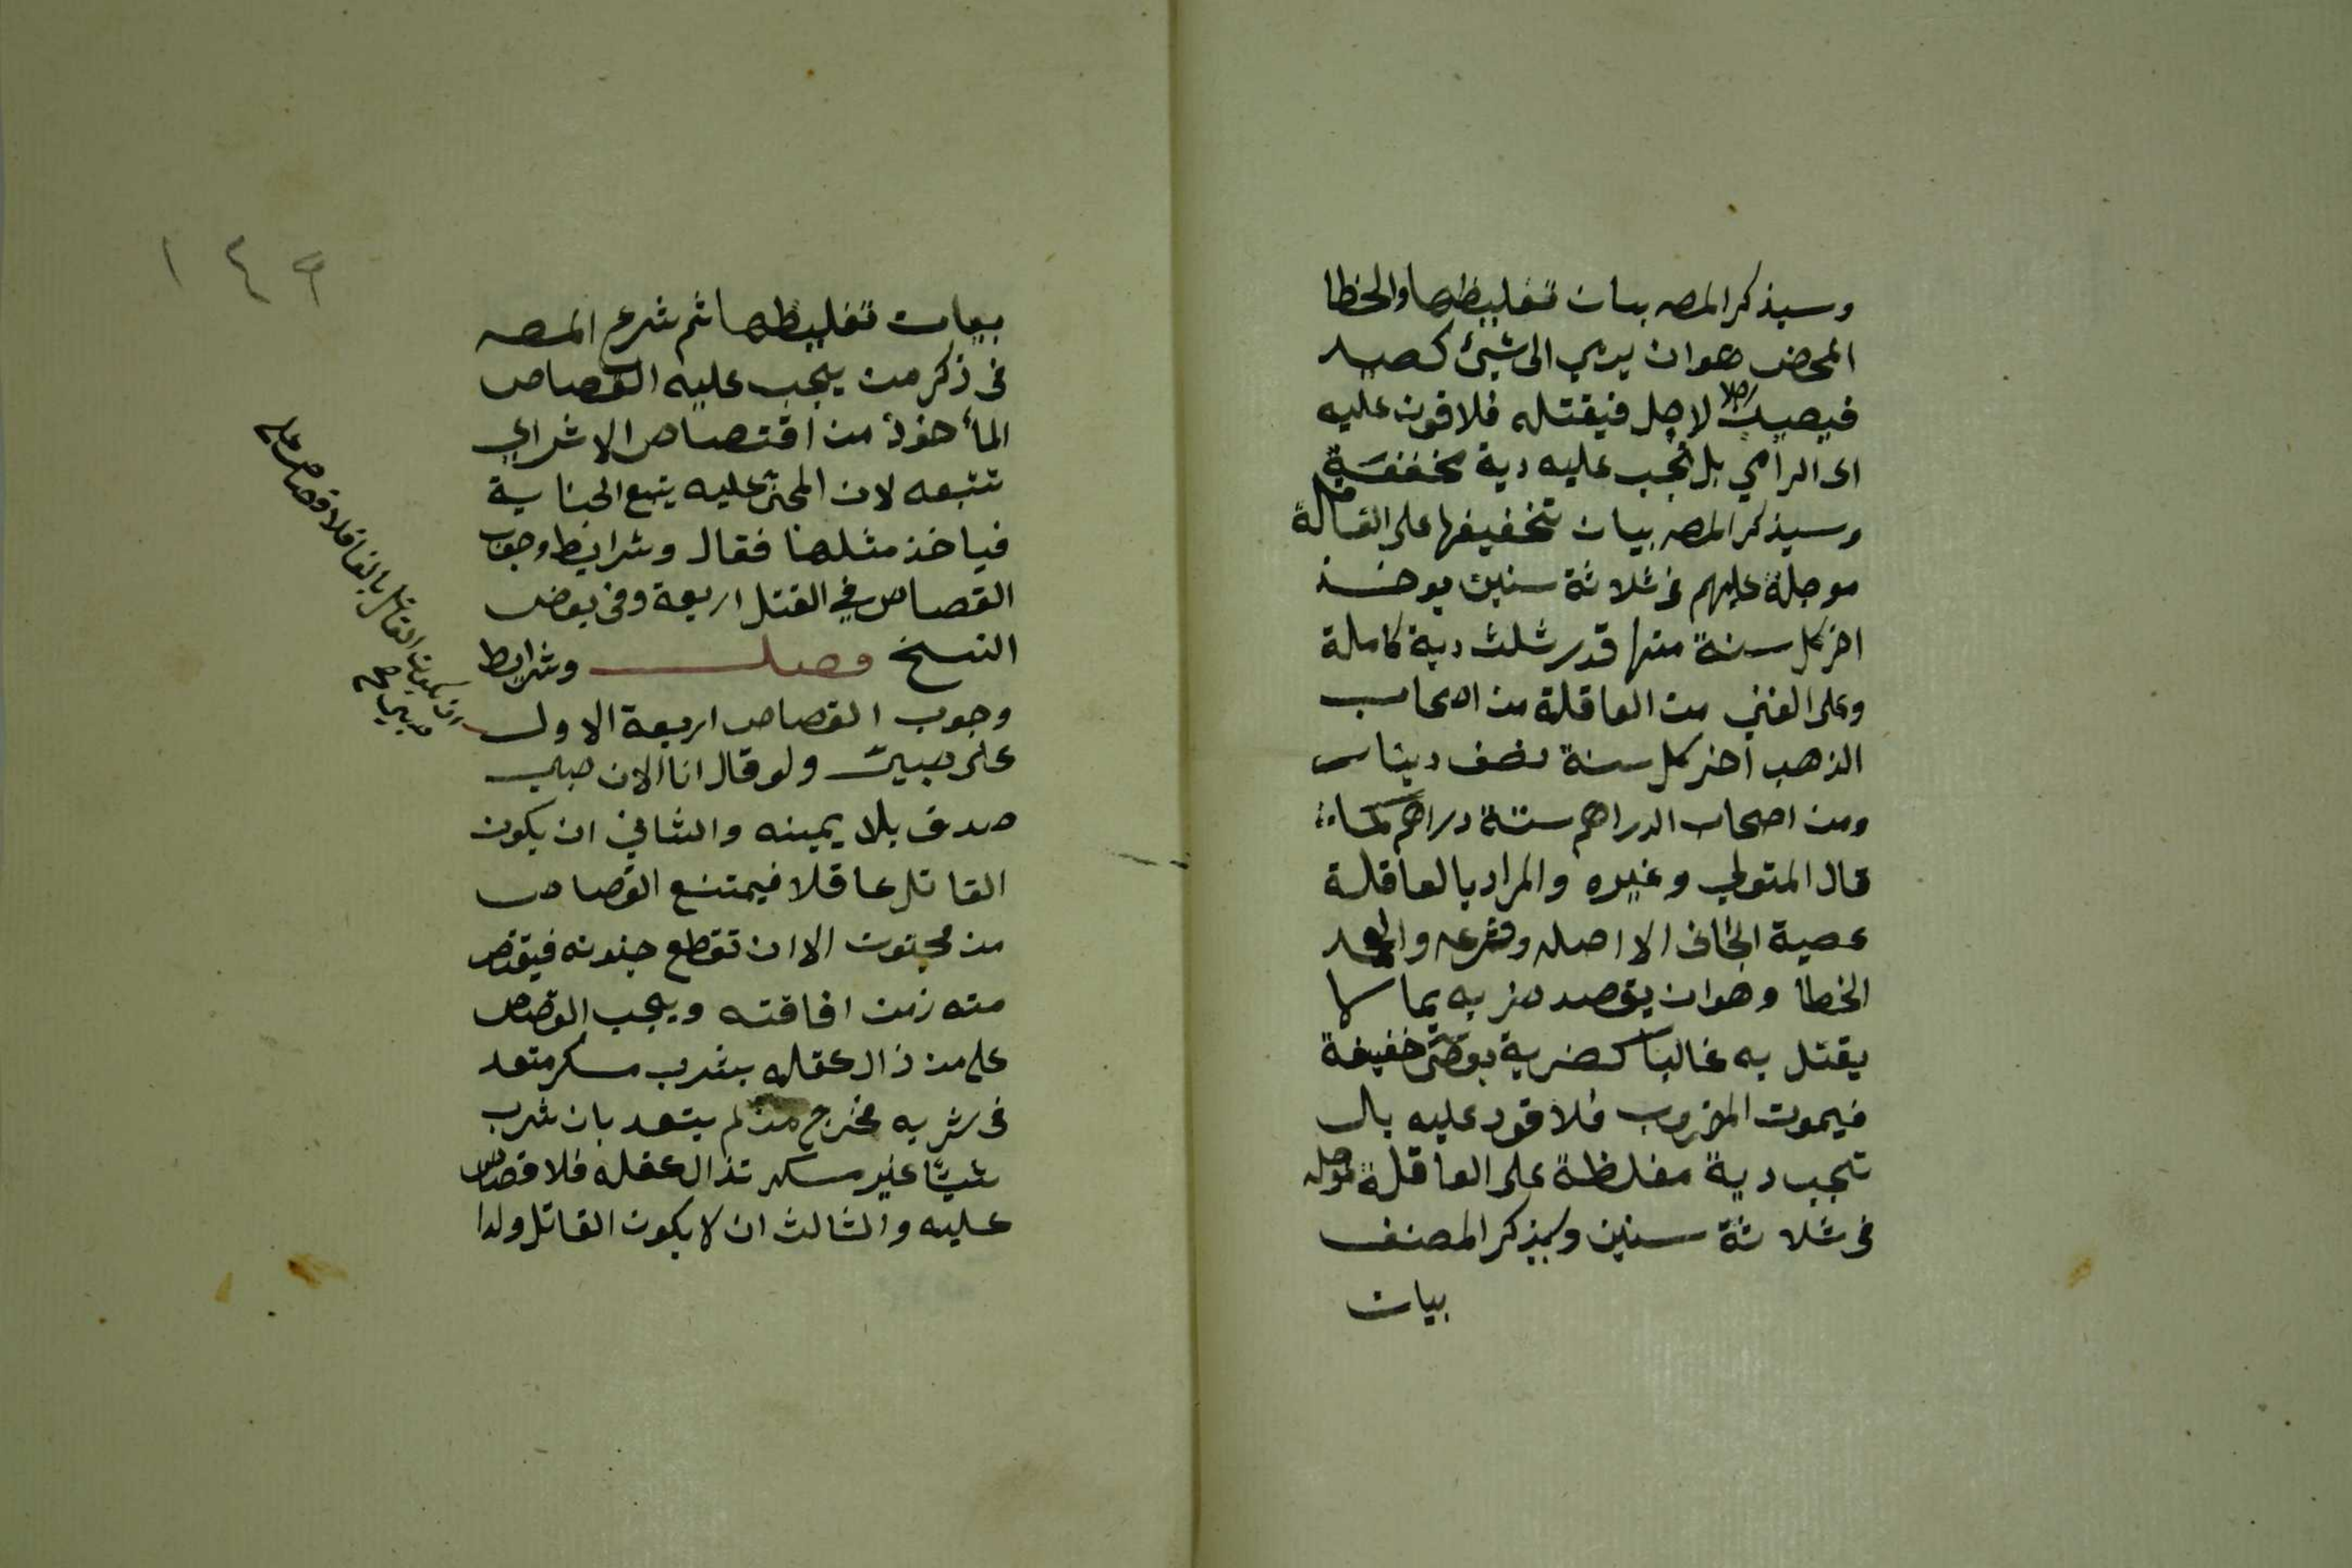 وسيذكر المصه بيان تغليظها والخطا
المحض هو ان يرمي الى شيئ كصيد
فيصيب رجلا لا جل فيقتله فلا قود عليه
اى الرامي بل تجب عليه دية مخففة
وسيذكر المصه بيان تخفيفها على العاقلة
موجلة عليهم فى ثلاثة سنين يوخذ
اخر كل سنة منها قدر ثلث دية كاملة
وعلى الغني من العاقلة من اصحاب
الذهب اخر كل سنة نصف دينار
ومن اصحاب الدراهم ستة دراهم كما
قال المتولي وغيره والمراد بالعاقلة
عصبة الجانى الا اصله وفرعه والعمد
الخطا وهو ان يقصد ضربه بما لا
يقتل به غالبا كضربة بعصى خفيفة
فيموت المضروب فلا قود عليه بل
تجب دية مغلظة على العاقلة موجله
فى ثلاثة سنين وسيذكر المصنف
بيان
١٤٩
بيان تغليظها ثم شرع المصه
فى ذكر من يجب عليه القصاص
المأخوذ من اقتصاص الاثر اى
تتبعه لان المجنى عليه يتبع الجناية
فياخذ مثلها فقال وشرايط وجوب
القصاص في القتل اربعة وفى بعض
النسخ فصل وشرايط
وجوب القصاص اربعة الاول
ان يكون القاتل بالغا فلا قصاص على
صبي صح
على صبي ولو قال انا الان صبي
صدق بلا يمينه والثاني ان يكون
القاتل عاقلا فيمتنع القصاص
من مجنون الا ان تقطع جنونه فيقتص
منه زمن افاقته ويجب القصاص
على من زال عقله بشرب مسكر متعد
فى شربه مخرج من لم يتعد بان شرب
شيئا غير مسكر فزال عقله فلا قصاص
عليه والثالث ان لا يكون القاتل ولدا